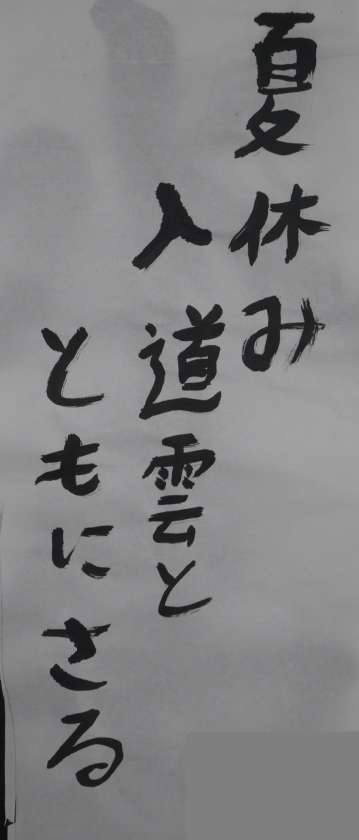 夏休み
入道雲と
ともにさる